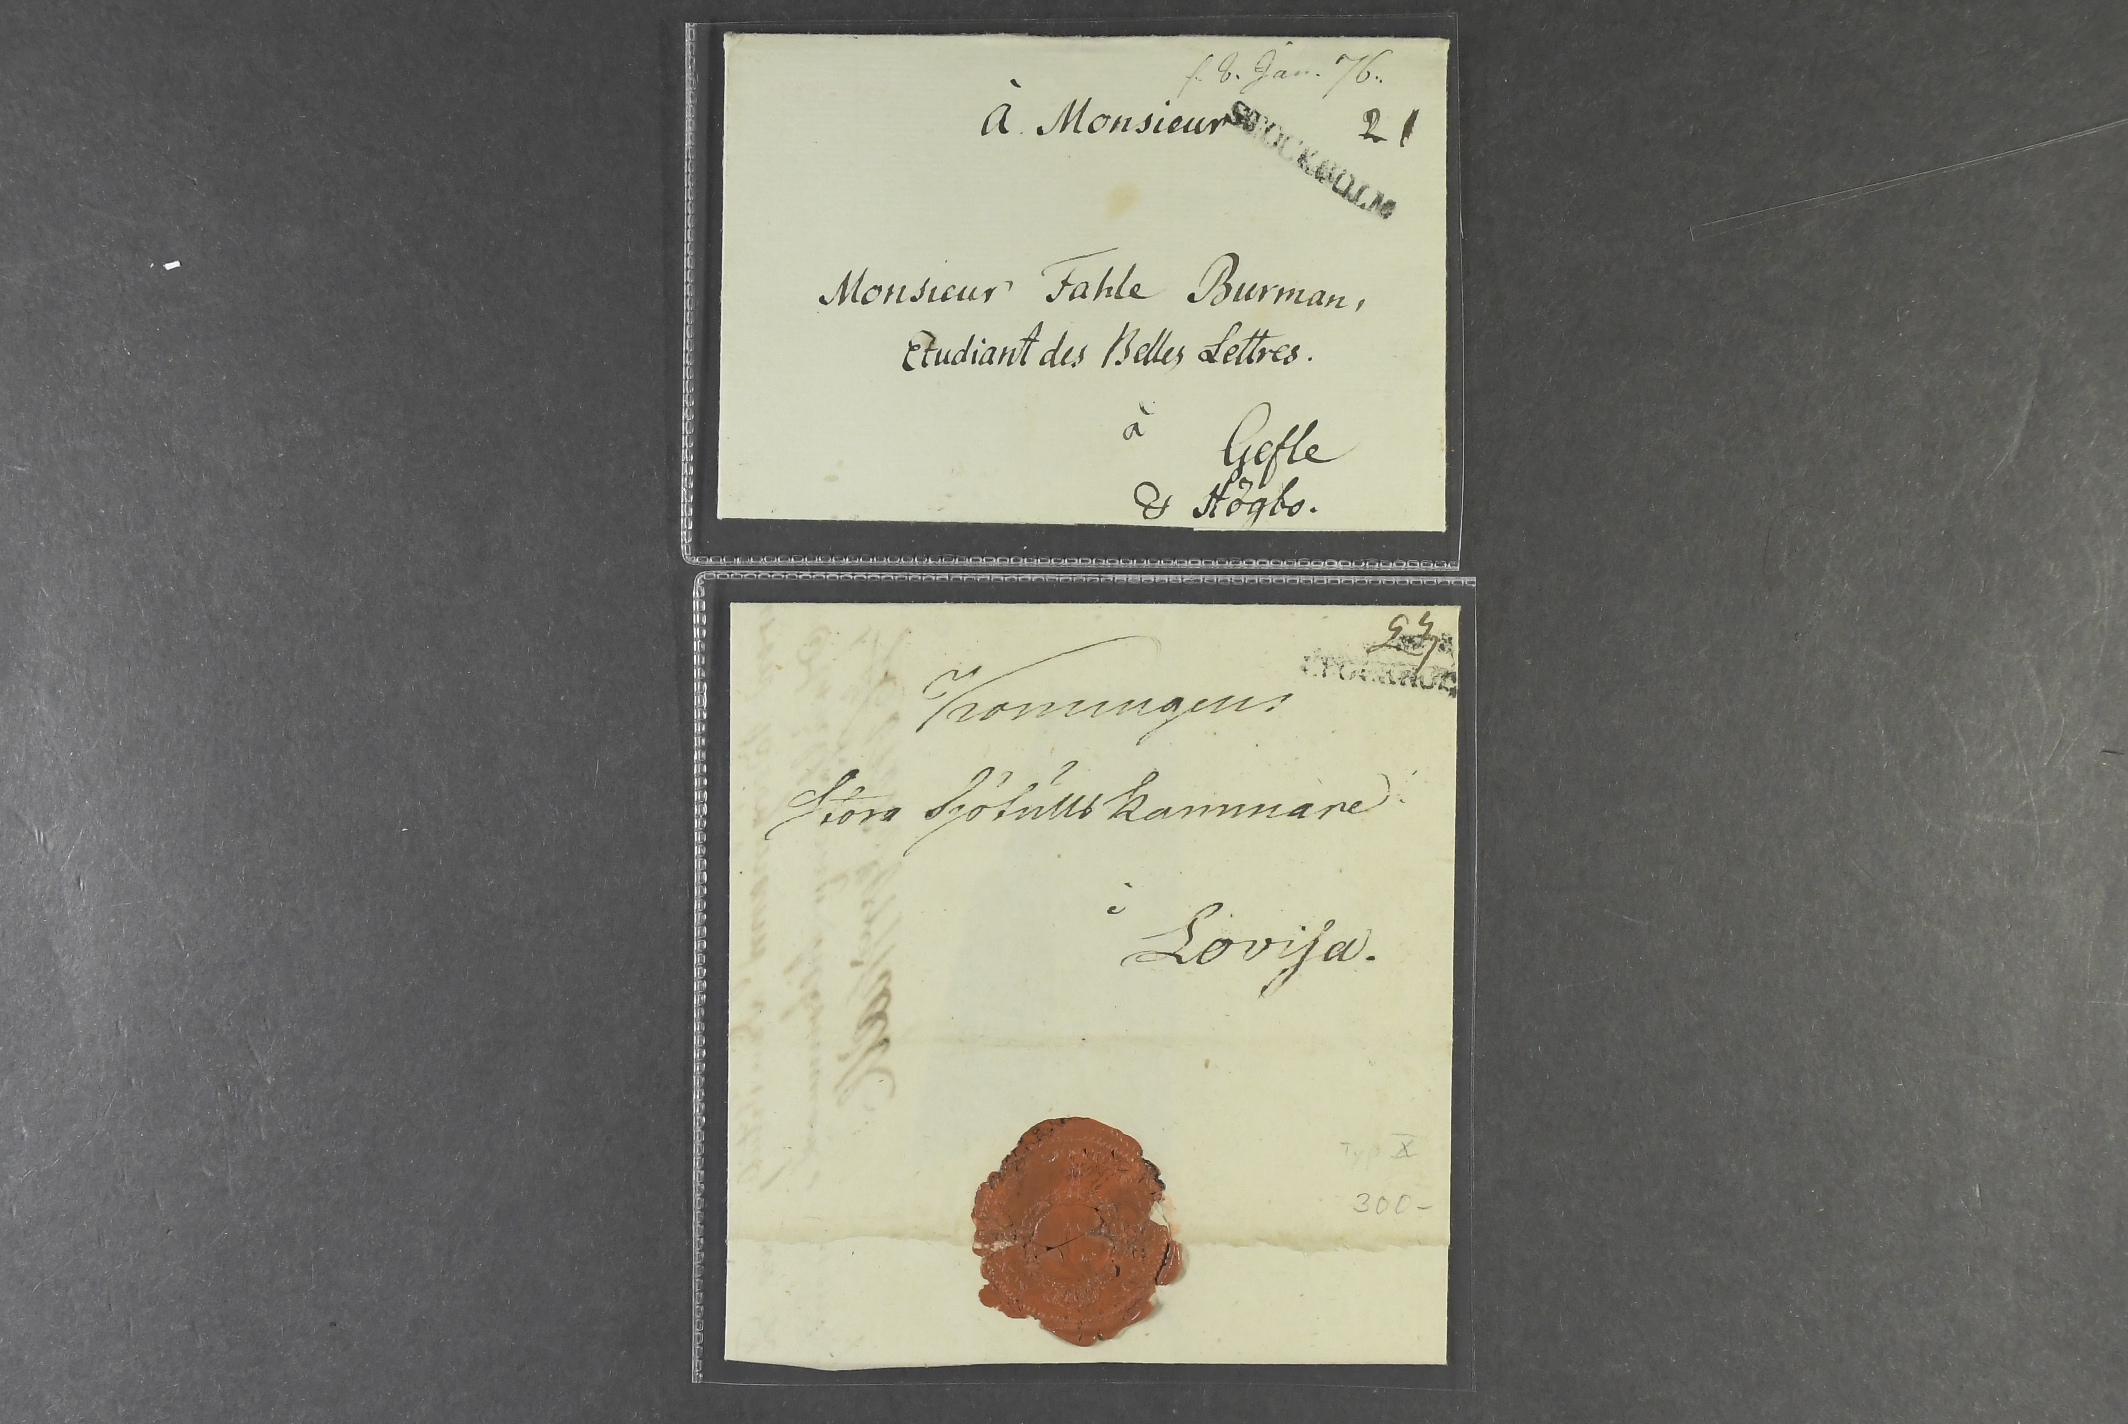 f. 8. Jan. 76.
à Monsieur
STOCKHOLM
21
Monsieur Fahle Burman,
Etudiant des Belles Lettres.
à
Gefle
& Högbo.
STOCKHOLM
Stora Sjötulls kammare
i
Lovisa.
Typ X
300-